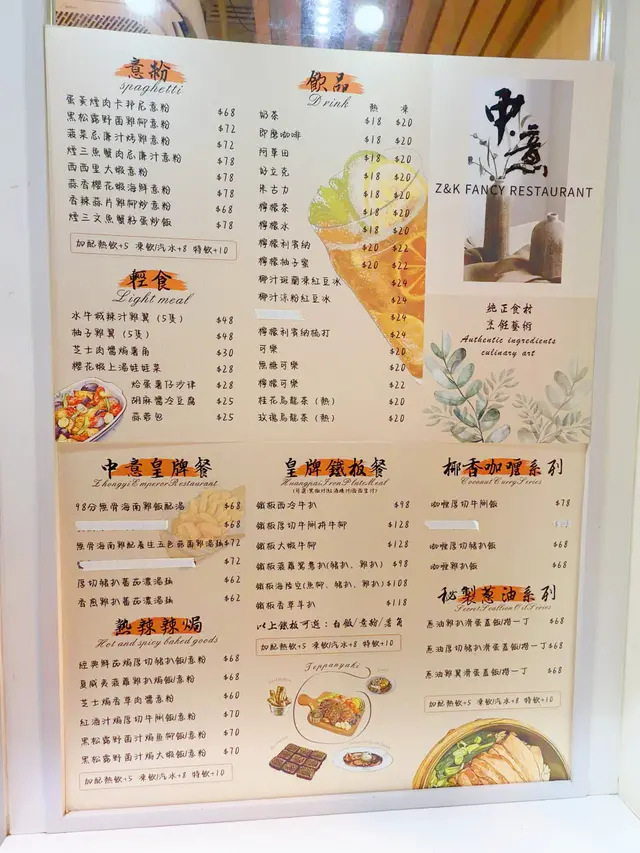 意粉
spaghetti
蛋黃煙肉卡邦尼意粉 $68
黑松露野菌雞柳意粉 $72
菠菜忌廉汁烤雞意粉 $72
煙三魚蟹肉忌廉汁意粉 $78
西西里大蝦意粉 $78
蒜香櫻花蝦海鮮意粉 $78
香辣蒜片雞柳炒意粉 $68
煙三文魚蟹籽蛋炒飯 $78
加配熱飲+5 凍飲/汽水+8 特飲+10
輕食
Light meal
水牛城辣汁雞翼(5隻) $48
柚子雞翼(5隻) $48
芝士肉醬焗薯角 $30
櫻花蝦上湯娃娃菜 $28
焓蛋薯仔沙律 $28
胡麻醬冷豆腐 $25
蒜蓉包 $25
飲品
Drink
熱 凍
奶茶 $18 $20
即磨咖啡 $18 $20
阿華田 $18 $20
好立克 $18 $20
朱古力 $18 $20
檸檬茶 $18 $20
檸檬水 $18 $20
檸檬利賓納 $20 $22
檸檬柚子蜜 $20 $22
椰汁斑蘭凍紅豆冰 $24
椰汁涼粉紅豆冰 $24
$24
檸檬利賓納梳打 $24
可樂 $20
無糖可樂 $20
檸檬可樂 $22
桂花烏龍茶(熱) $20
玫瑰烏龍茶(熱) $20
中意
Z&K FANCY RESTAURANT
純正食材
烹飪藝術
Authentic ingredients
culinary art
中意皇牌餐
Zhongyi Emperor Restaurant
98分無骨海南雞飯配湯 $68
$68
無骨海南雞配養生五色菇菌雞湯 $72
$72
厚切豬扒蕃茄濃湯 $62
香煎雞扒蕃茄濃湯 $62
熱辣辣焗
Hot and spicy baked goods
經典鮮茄焗厚切豬扒飯/意粉 $68
夏威夷菠蘿雞扒焗飯/意粉 $68
芝士焗香草肉醬意粉 $60
紅酒汁焗厚切牛脷飯/意粉 $70
黑松露野菌汁焗魚柳飯/意粉 $70
黑松露野菌汁焗大蝦飯/意粉 $70
加配熱飲+5 凍飲/汽水+8 特飲+10
皇牌鐵板餐
Huangpai Iron Plate Meal
鐵板西冷牛扒 $98
鐵板厚切牛脷拼牛柳 $128
鐵板大蝦牛柳 $128
鐵板菠蘿鴛鴦扒(豬扒、雞扒) $98
鐵板海陸空(魚柳、豬扒、雞扒) $108
鐵板香草羊扒 $118
以上鐵板可選：白飯/意粉/薯角
加配熱飲+5 凍飲/汽水+8 特飲+10
Teppanyaki
椰香咖喱系列
Coconut Curry Series
咖喱厚切牛脷飯 $78
咖喱厚切豬扒飯 $68
咖喱雞扒飯 $68
秘製蔥油系列
Secret Scallion Oil Series
蔥油雞扒滑蛋蓋飯/撈一丁 $68
蔥油厚切豬扒滑蛋蓋飯/撈一丁 $68
蔥油雞翼滑蛋蓋飯/撈一丁 $68
加配熱飲+5 凍飲/汽水+8 特飲+10